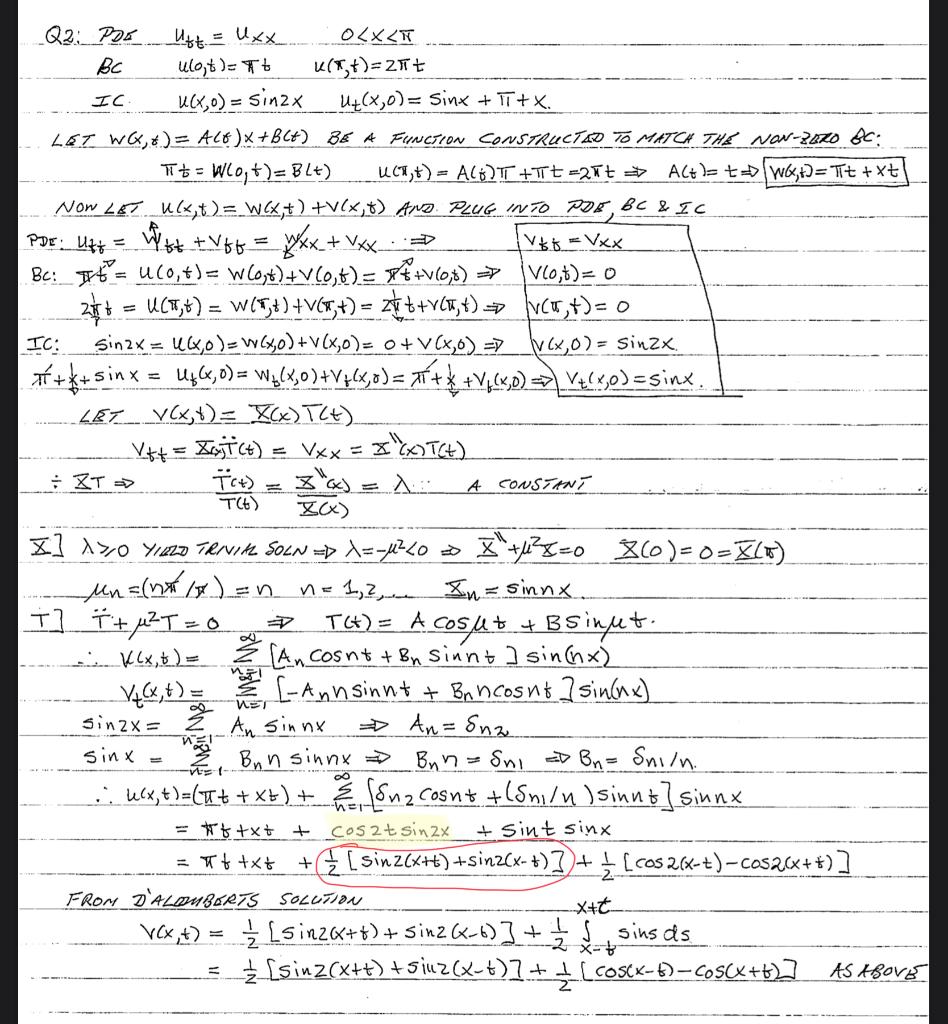 Q2: PDE u_tt = u_xx 0<x<π
BC u(0,t)=πt u(π,t)=2πt
IC. u(x,0)=sin2x u_t(x,0)=sinx+π+x.
LET W(x,t)=A(t)x+B(t) BE A FUNCTION CONSTRUCTED TO MATCH THE NON-ZERO BC:
πt=W(0,t)=B(t) u(π,t)=A(t)π+πt=2πt ⇒ A(t)=t ⇒ W(x,t)=πt+xt
NOW LET u(x,t)=W(x,t)+V(x,t) AND PLUG INTO PDE, BC & IC
PDE: u_tt = W_tt+V_tt = W_xx+V_xx ⇒ V_tt=V_xx
BC: πt=u(0,t)=W(0,t)+V(0,t)=πt+V(0,t) ⇒ V(0,t)=0
2πt=u(π,t)=W(π,t)+V(π,t)=2πt+V(π,t) ⇒ V(π,t)=0
IC: sin2x=u(x,0)=W(x,0)+V(x,0)=0+V(x,0) ⇒ V(x,0)=sin2x.
π+x+sinx = u_t(x,0)=W_t(x,0)+V_t(x,0)=π+x+V_t(x,0) ⇒ V_t(x,0)=sinx.
LET V(x,t)=X(x)T(t)
V_tt=X(x)T̈(t)=V_xx=X''(x)T(t)
÷XT ⇒ T̈(t)/T(t) = X''(x)/X(x) = λ: A CONSTANT
X] λ≥0 YIELD TRIVIAL SOLN ⇒ λ=-μ²<0 ⇒ X''+μ²X=0 X(0)=0=X(π)
μ_n=(nπ/π)=n n=1,2,... X_n=sinnx
T] T̈+μ²T=0 ⇒ T(t)=Acosμt+Bsinμt.
∴ V(x,t)= ∑_{n=1}^∞ [A_n cosnt+B_n sinnt]sin(nx)
V_t(x,t)= ∑_{n=1}^∞ [-A_n n sinnt+B_n n cosnt]sin(nx)
sin2x= ∑_{n=1}^∞ A_n sinnx ⇒ A_n=δ_n2
sinx = ∑_{n=1}^∞ B_n n sinnx ⇒ B_n n=δ_n1 ⇒ B_n=δ_n1/n.
∴ u(x,t)=(πt+xt)+ ∑_{n=1}^∞ [δ_n2 cosnt+(δ_n1/n)sinnt]sinnx
= πt+xt + cos2tsin2x + sint sinx
= πt+xt + 1/2[sin2(x+t)+sin2(x-t)] + 1/2[cos2(x-t)-cos2(x+t)]
FROM D'ALEMBERTS SOLUTION
V(x,t) = 1/2[sin2(x+t)+sin2(x-t)] + 1/2 ∫_{x-t}^{x+t} sins ds
= 1/2[sin2(x+t)+sin2(x-t)] + 1/2[cos(x-t)-cos(x+t)] AS ABOVE